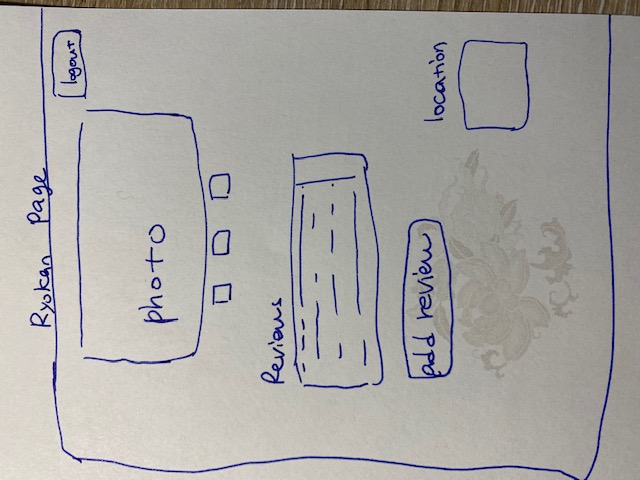 Ryokan Page
logout
photo
Reviews
add review
location